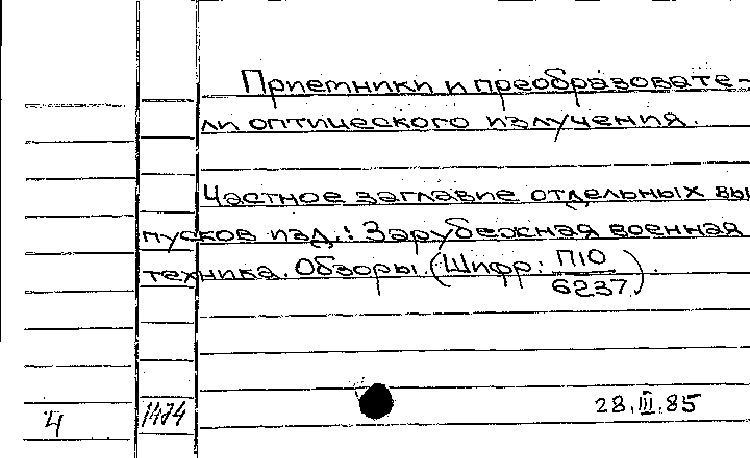 Приемники и преобразовате-
ли оптического излучения.
Частное заглавие отдельных вы
пусков изд.: Зарубежная военная
техника. Обзоры. (Шифр: П10/6237).
Ч 1474 28.III.85